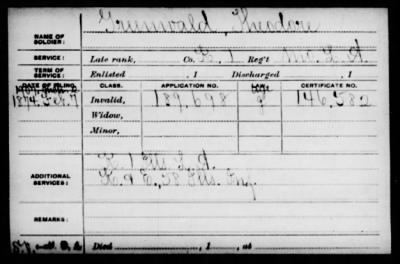 NAME OF SOLDIER: Grunwald, Theodore
SERVICE: Late rank, Co. Reg't
TERM OF SERVICE: Enlisted , 1 Discharged , 1
DATE OF FILING. CLASS. APPLICATION NO. LAW. CERTIFICATE NO.
1874, Feb. 7 Invalid, 189,698 146,582
Widow,
Minor,
ADDITIONAL SERVICES:
58 Ills. Inf.
REMARKS:
Died , 1 , at